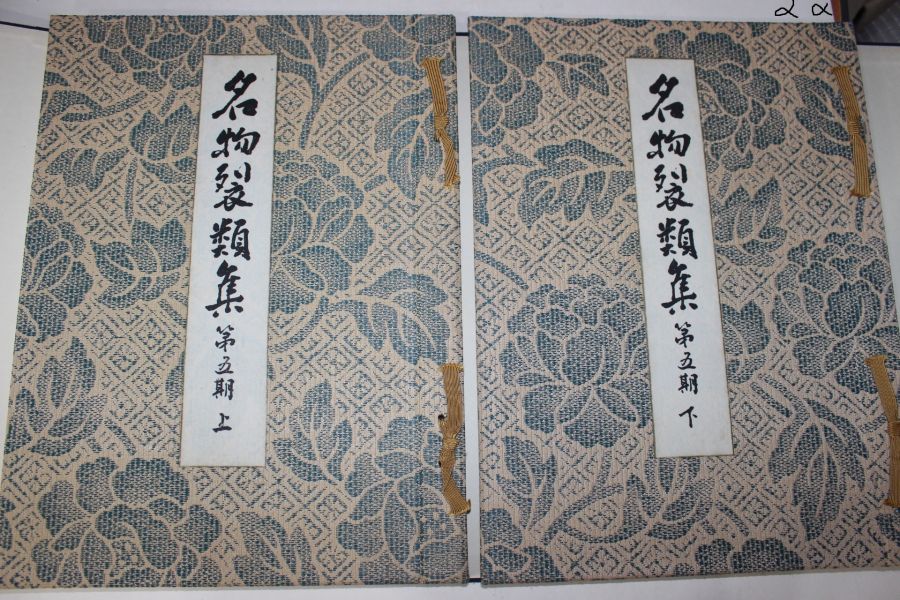 名物裂類集 第五期 上
名物裂類集 第五期 下